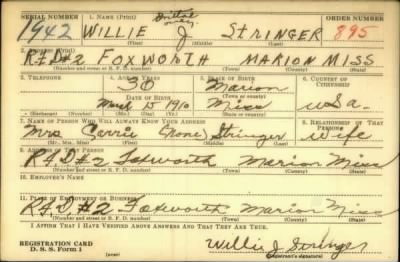 SERIAL NUMBER 1. NAME (Print) Initial only ORDER NUMBER
1942 WILLIE J STRINGER 895
(First) (Middle) (Last)
2. ADDRESS (Print)
R.F.D#2 FOXWORTH MARION MISS
(Number and street or R. F. D. number) (Town) (County) (State)
3. TELEPHONE 4. AGE IN YEARS 5. PLACE OF BIRTH 6. COUNTRY OF CITIZENSHIP
30 Marion
DATE OF BIRTH (Town or county)
March 15 1910 Miss U.S.a.
(Exchange) (Number) (Mo.) (Day) (Yr.) (State or country)
7. NAME OF PERSON WHO WILL ALWAYS KNOW YOUR ADDRESS 8. RELATIONSHIP OF THAT PERSON
Mrs Carrie (None) Stringer wife
(Mr., Mrs., Miss) (First) (Middle) (Last)
9. ADDRESS OF THAT PERSON
R.F.D#2 Foxworth Marion Miss
(Number and street or R. F. D. number) (Town) (County) (State)
10. EMPLOYER'S NAME
11. PLACE OF EMPLOYMENT OR BUSINESS
R.F.D #2 Foxworth Marion Miss
(Number and street or R. F. D. number) (Town) (County) (State)
I AFFIRM THAT I HAVE VERIFIED ABOVE ANSWERS AND THAT THEY ARE TRUE.
REGISTRATION CARD Willie J. Stringer
D. S. S. Form 1 (over) (Registrant's signature)